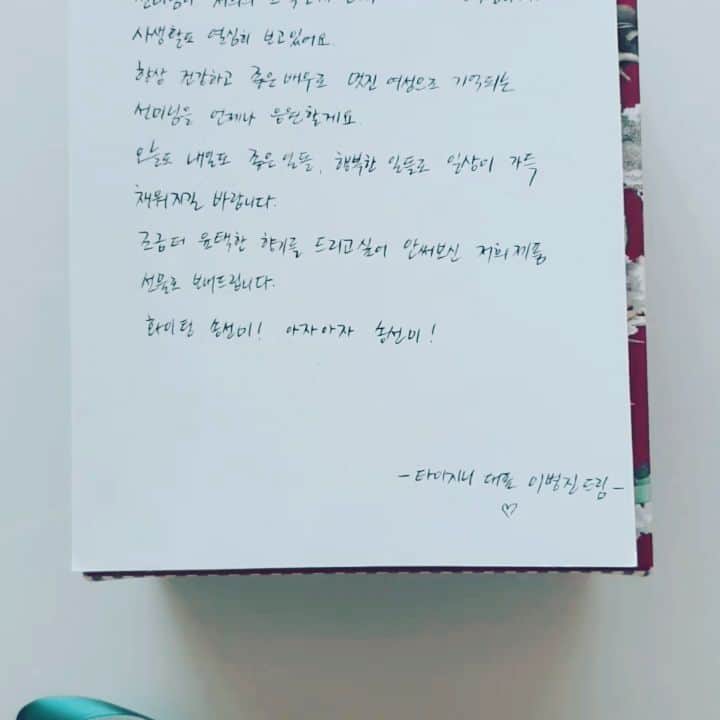 사생활도 열심히 보고있어요.
항상 건강하고 좋은배우로 멋진 여성으로 기억되는
선미님을 언제나 응원할게요.
오늘도 내일도 좋은일들, 행복한 일들로 일상이 가득
채워지길 바랍니다.
조금더 윤택한 향기를 드리고싶어 안써보신 저희제품
선물로 보내드립니다.
화이팅 송선미! 아자아자 송선미!
- 타마지니 대표 이병진드림 -